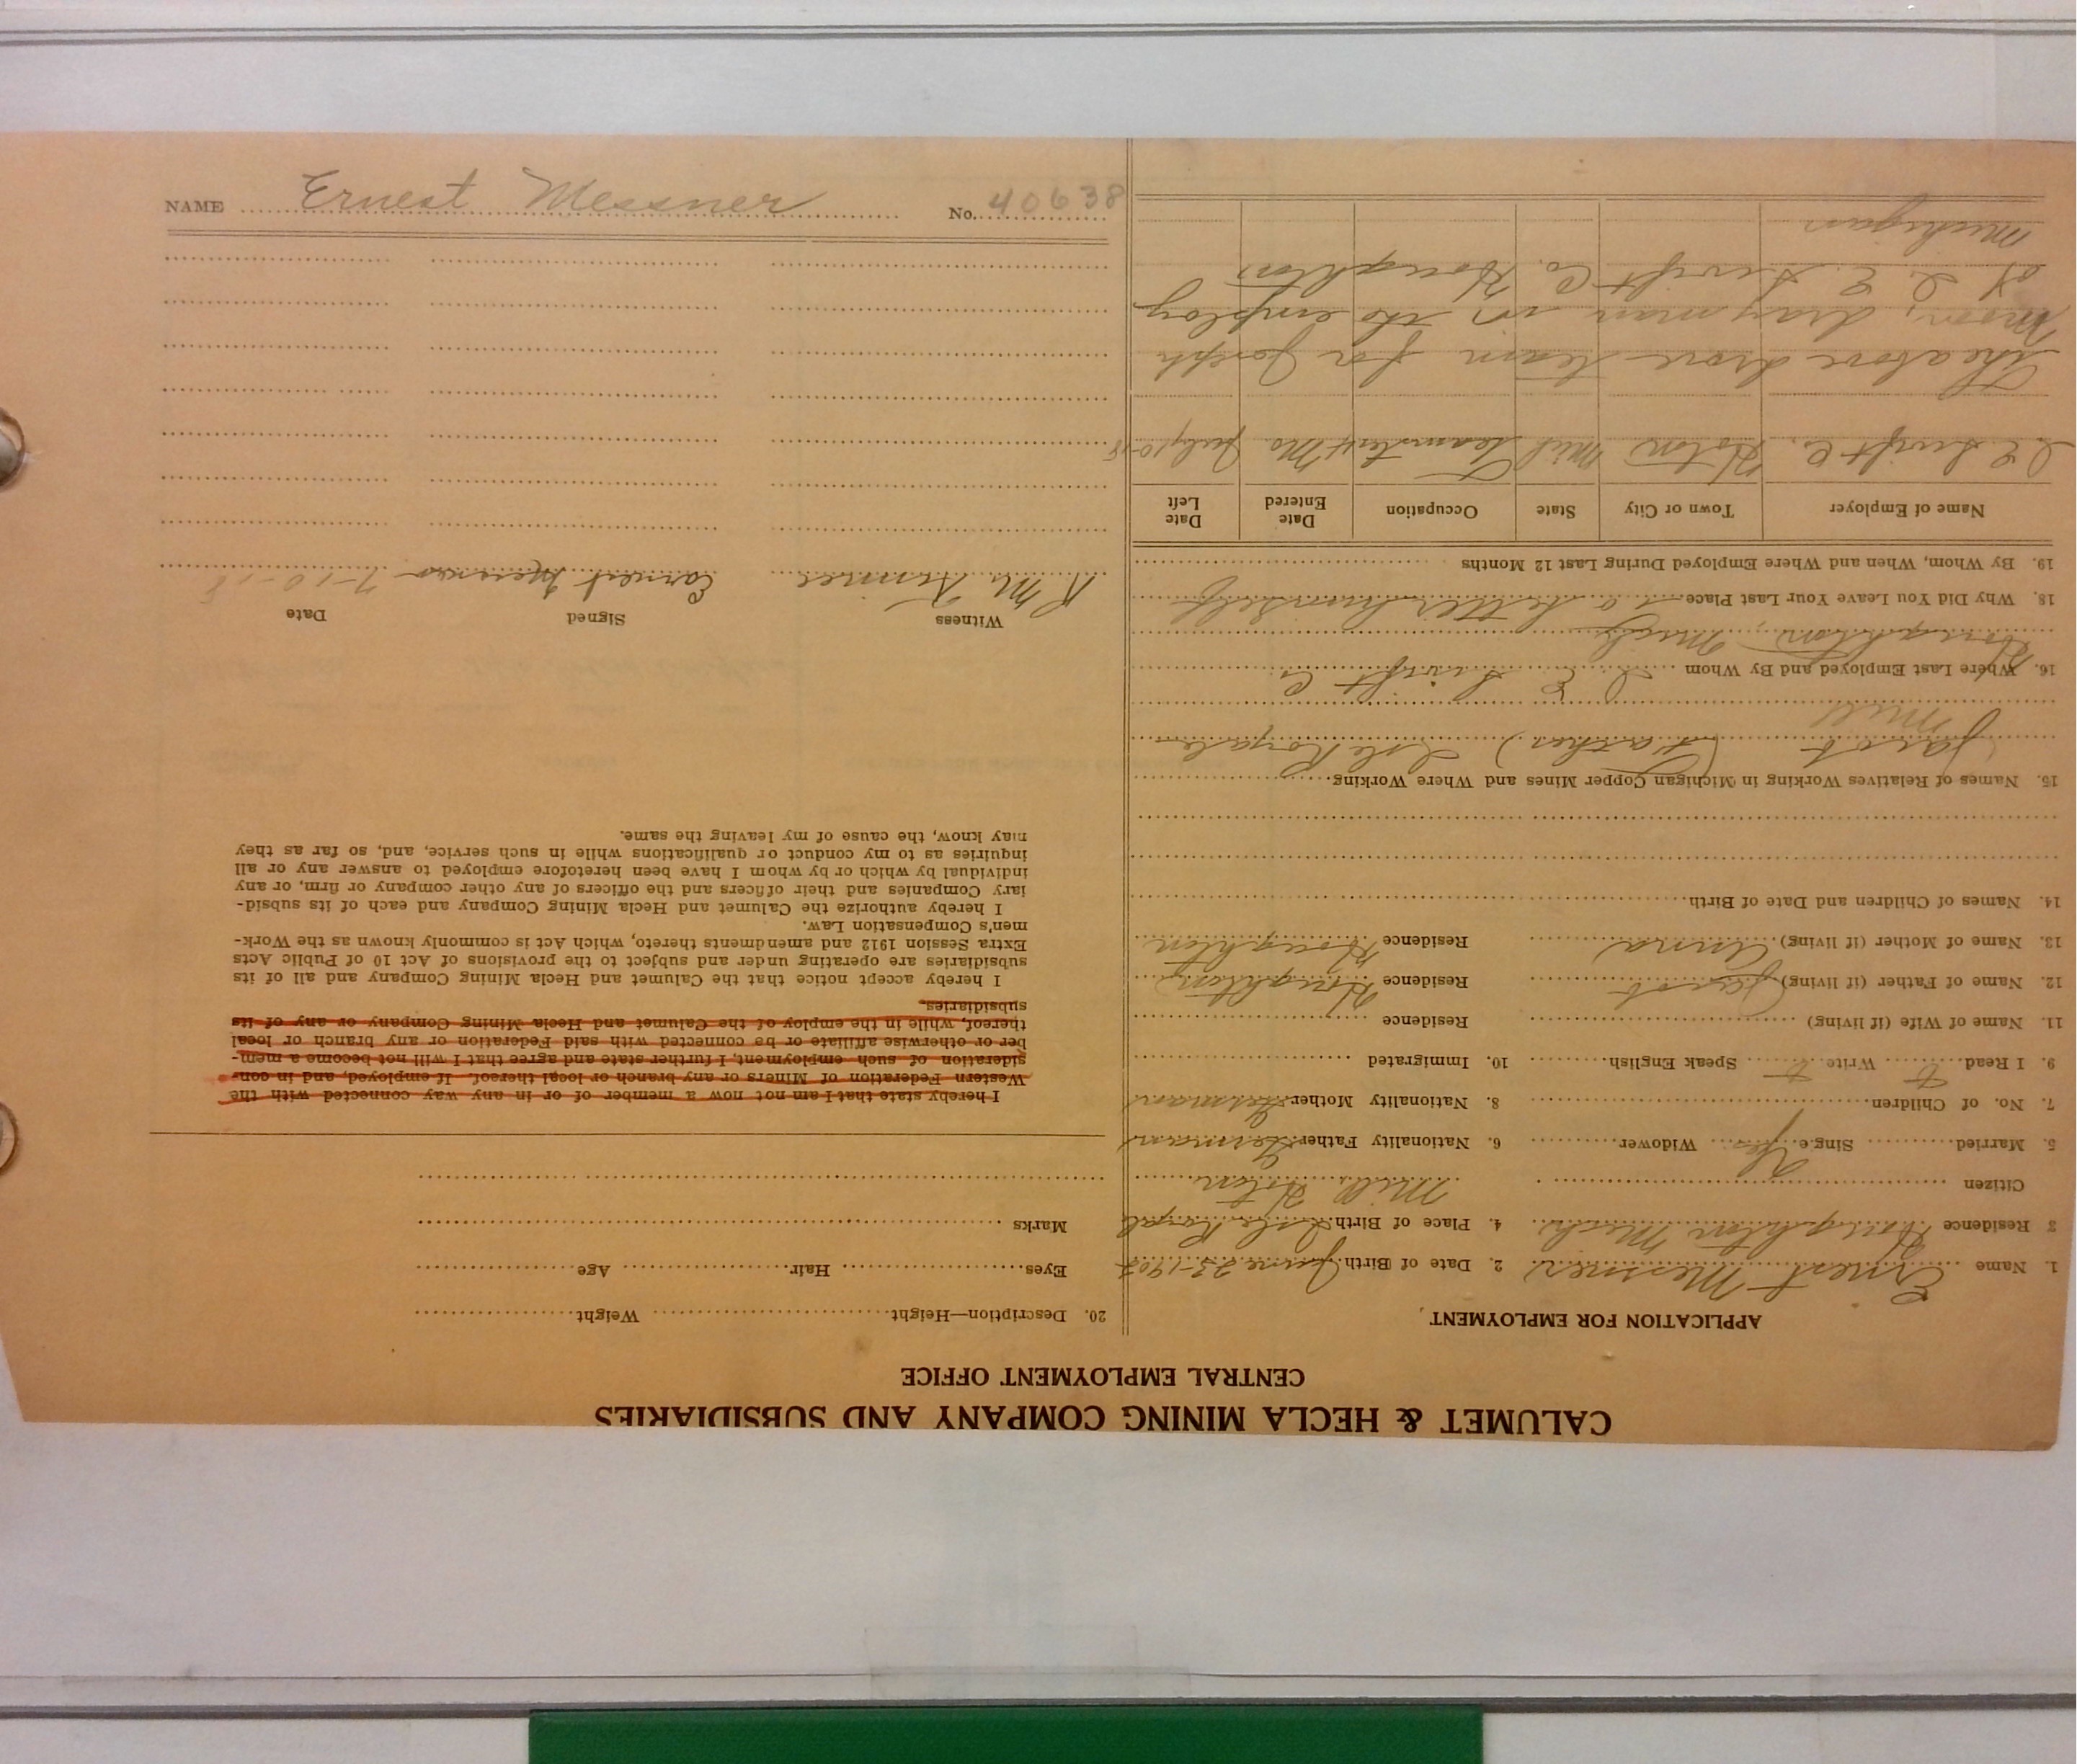 CALUMET & HECLA MINING COMPANY AND SUBSIDIARIES
CENTRAL EMPLOYMENT OFFICE
APPLICATION FOR EMPLOYMENT
1. Name Ernest Messner 2. Date of Birth June 23-1902
3 Residence Houghton Mich. 4. Place of Birth Isle Royal
Citizen Mill Hoton
5. Married Single Yes Widower 6. Nationality Father German
7. No. of Children 8. Nationality Mother German
9. I Read Write Speak English 10. Immigrated
11. Name of Wife (if living) Residence
12. Name of Father (if living) Jacob Residence Houghton
13. Name of Mother (if living) Anna Residence Houghton
14. Names of Children and Date of Birth
15. Names of Relatives Working in Michigan Copper Mines and Where Working
Jacob (Father) Isle Royale
Mill
16. Where Last Employed and By Whom I. E. Swift Co
Houghton, Mich
18. Why Did You Leave Your Last Place To better himself
19. By Whom, When and Where Employed During Last 12 Months
Name of Employer Town or City State Occupation Date Entered Date Left
I E Swift Co. Hoton Mich Teamster 4 Mo July 10-18
The above drove team for Joseph
Moon, drayman in the employ
of I. E. Swift Co. Houghton
Michigan
20. Description—Height Weight
Eyes Hair Age
Marks
I hereby state that I am not now a member of or in any way connected with the
Western Federation of Miners or any branch or local thereof. If employed, and in con-
sideration of such employment, I further state and agree that I will not become a mem-
ber or otherwise affiliate or be connected with said Federation or any branch or local
thereof, while in the employ of the Calumet and Hecla Mining Company or any of its
subsidiaries.
I hereby accept notice that the Calumet and Hecla Mining Company and all of its
subsidiaries are operating under and subject to the provisions of Act 10 of Public Acts
Extra Session 1912 and amendments thereto, which Act is commonly known as the Work-
men's Compensation Law.
I hereby authorize the Calumet and Hecla Mining Company and each of its subsid-
iary Companies and their officers and the officers of any other company or firm, or any
individual by which or by whom I have been heretofore employed to answer any or all
inquiries as to my conduct or qualifications while in such service, and, so far as they
may know, the cause of my leaving the same.
Witness Signed Date
R M Earnest Messner 7-10-18
NAME Ernest Messner No. 40638